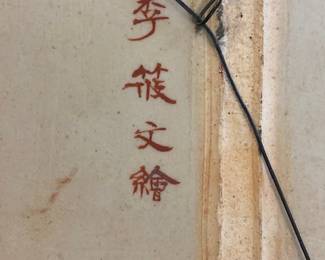 李筱文繪